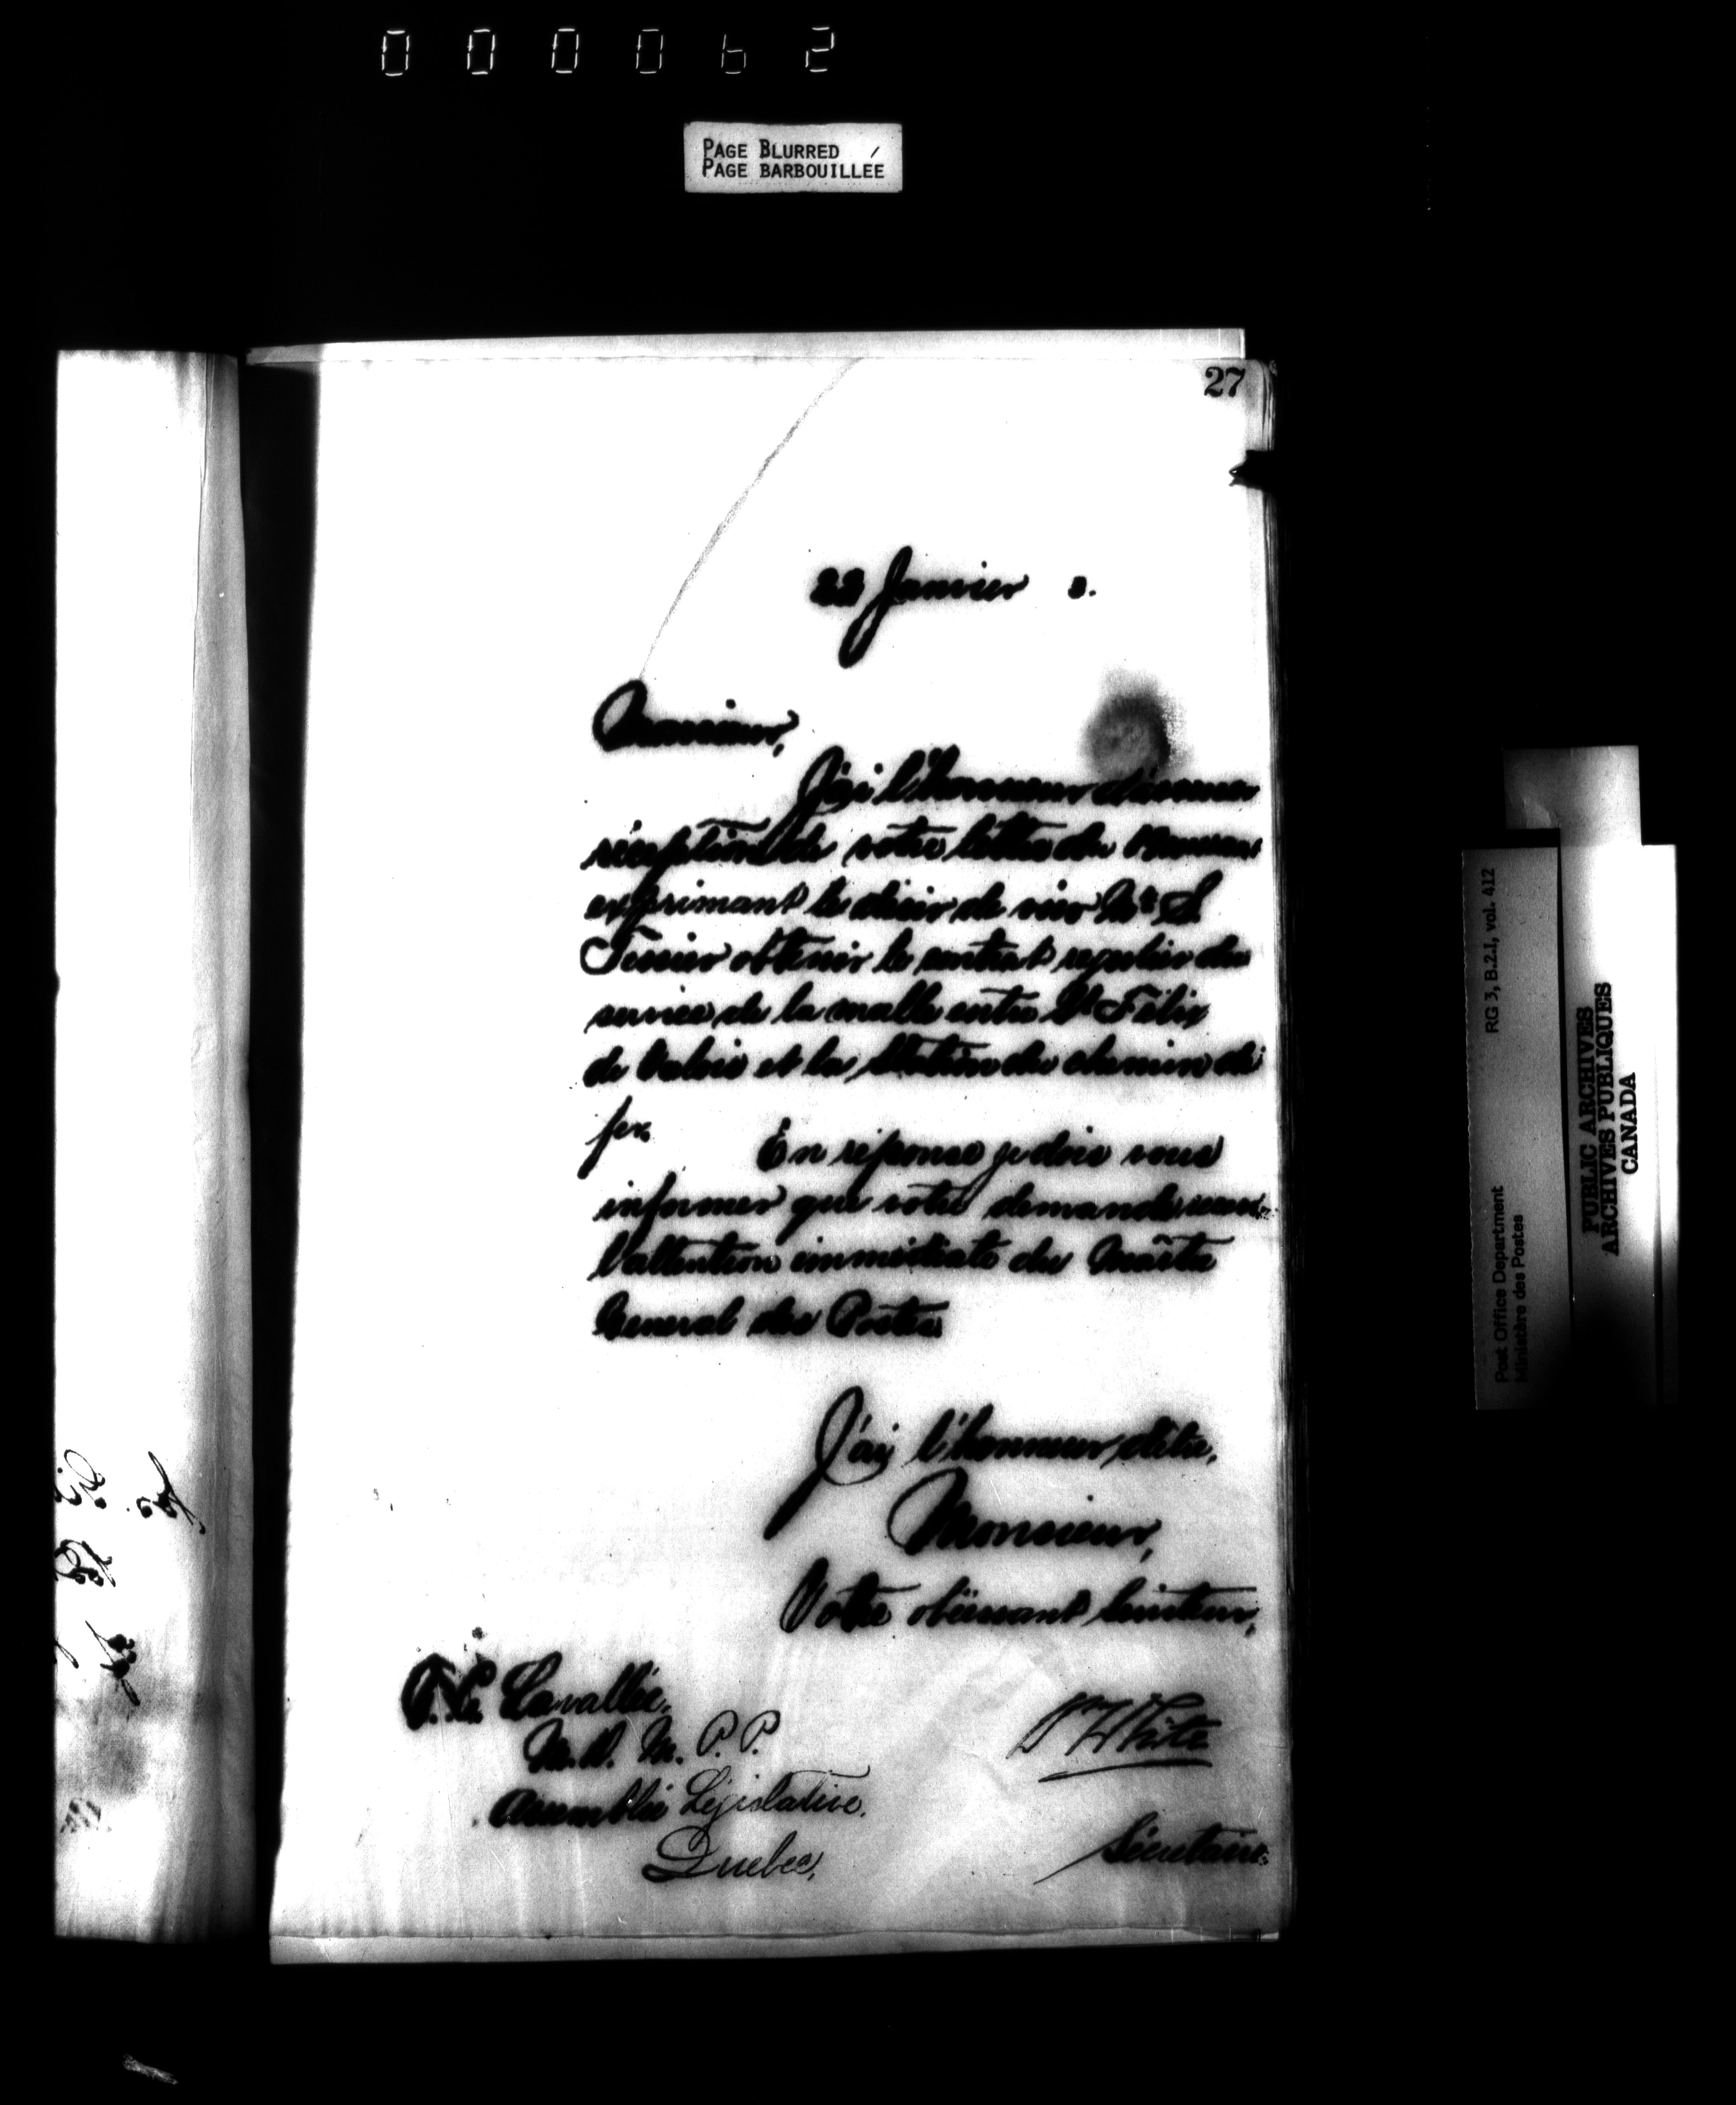 000062
PAGE BLURRED
PAGE BARBOUILLÉE
27
22 Janvier 3.
Monsieur,
J'ai l'honneur d'accuser
réception de votre lettre du
exprimant le désir de voir Mr S.
Tessier obtenir le contrat regulier du
service de la malle entre St Félix
de Valois et la Station du chemin de
fer.
En réponse je dois vous
informer que votre demande
l'attention immédiate du Maître
General des Postes
J'ai l'honneur d'être,
Monsieur,
Votre obéissant Serviteur,
Lavallée,
M.D. M.P.P.
Assemblée Législative,
Quebec,
White
Sécretaire.
RG 3, B.2.I, vol. 412
Post Office Department
Ministère des Postes
PUBLIC ARCHIVES
ARCHIVES PUBLIQUES
CANADA